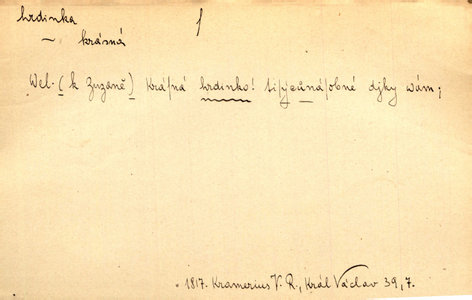 hrdinka f
~ krásná
Wel. (k Zuzáně) kráſná hrdinko! tiſycůnáſobné djky wám;
1817. Kramerius V. R., Král Václav 39, 7.